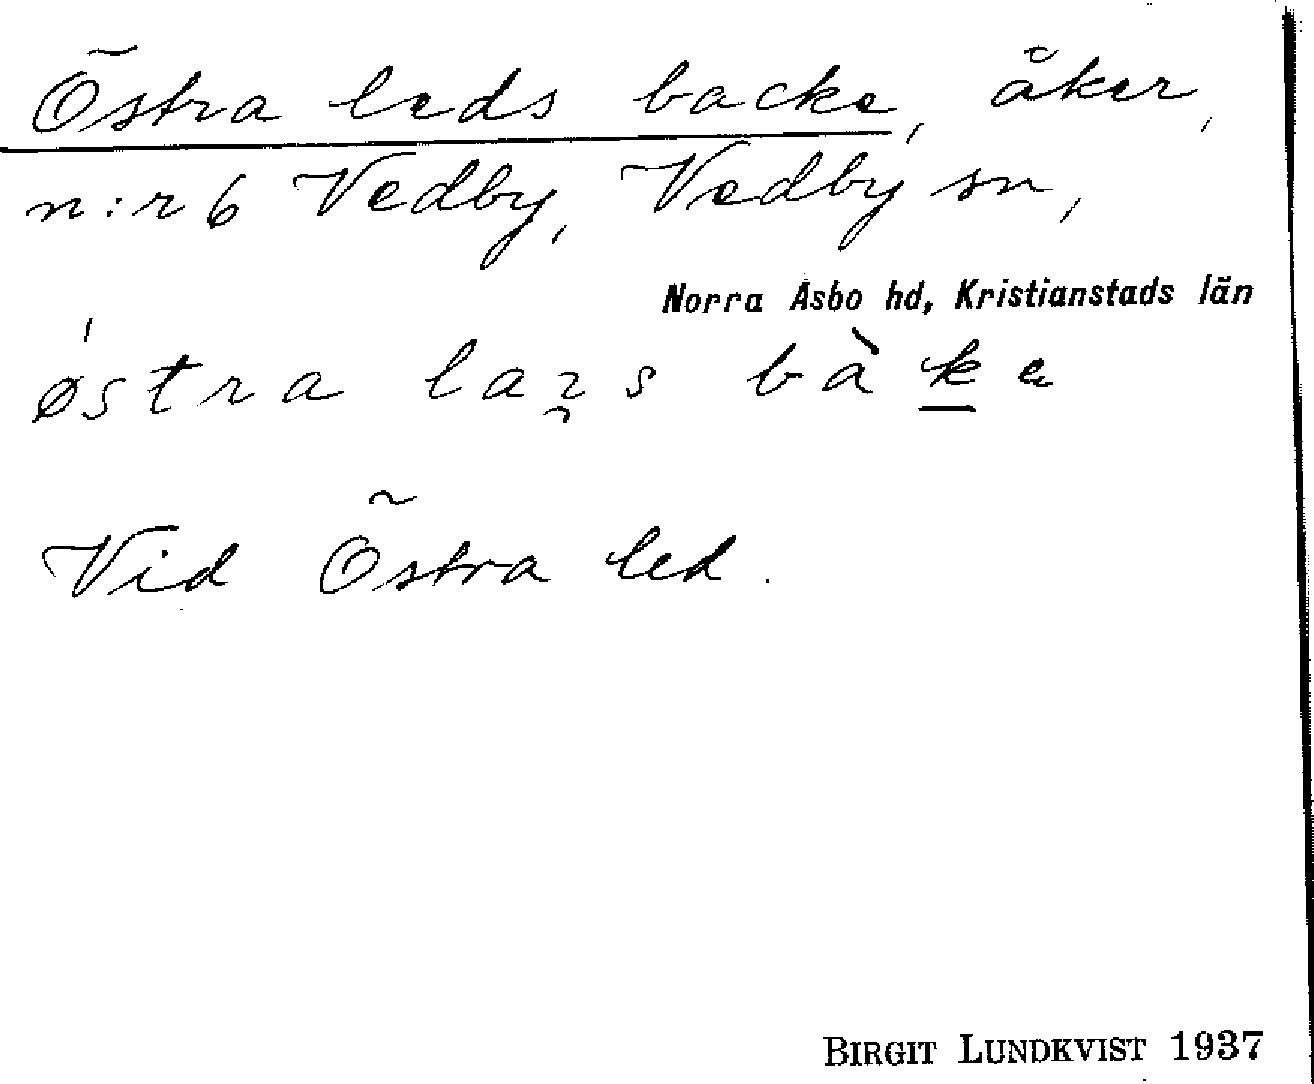 Östra leds backe, åker,
n:r 6 Vedby, Vedby sn,
Norra Åsbo hd, Kristianstads län
ǿstra laɀ̯s bàk̲ɐ
Vid Östra led.
BIRGIT LUNDKVIST 1937